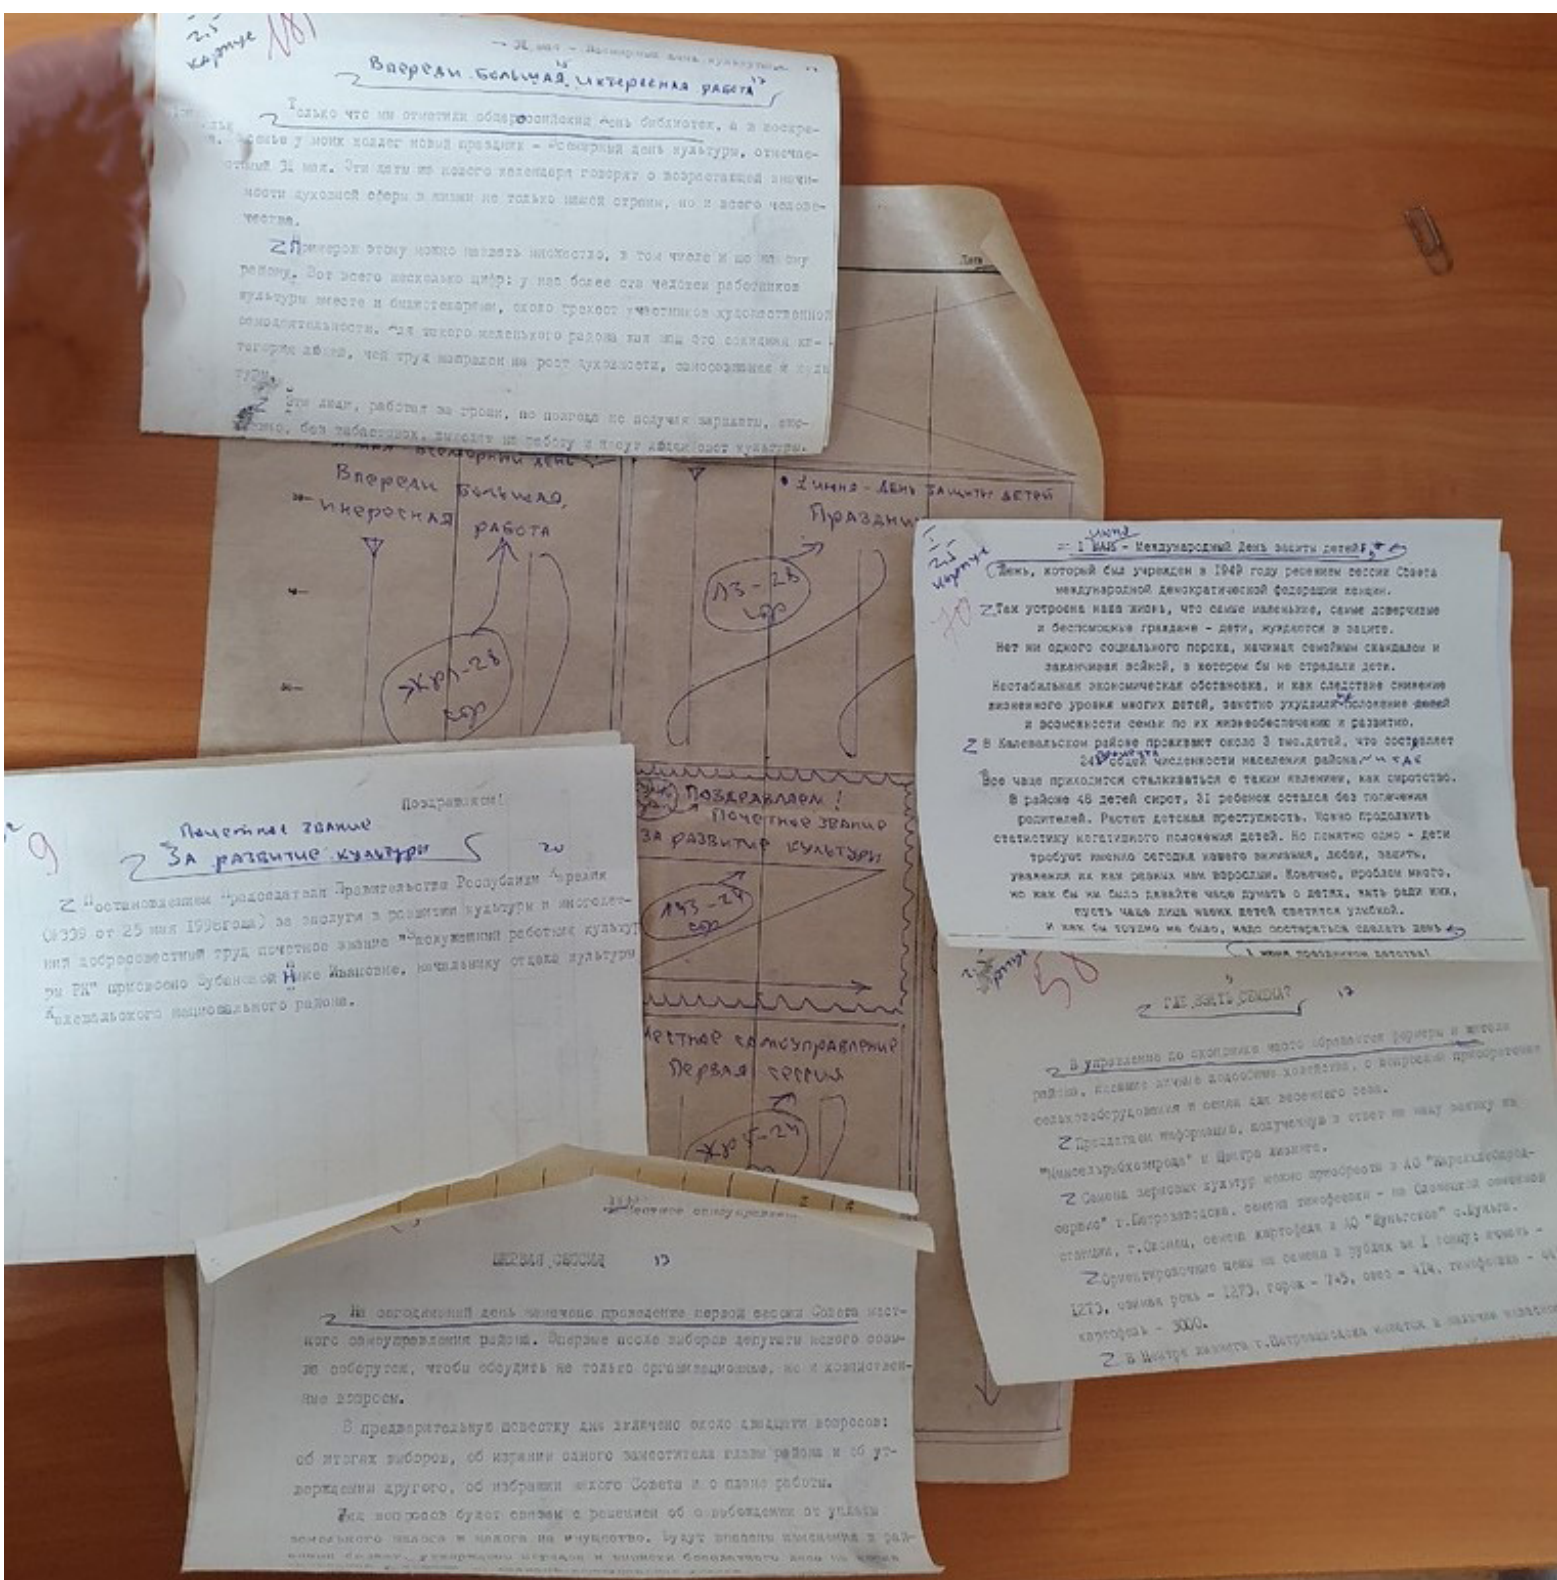 2,5
корпус
181
— 31 мая – Всемирный день культуры
Впереди большая, интересная работа
Только что мы отметили общероссийский день библиотек, а в воскре-
сенье у моих коллег новый праздник – Всемирный день культуры, отмечае-
мый 31 мая. Эти даты из нового календаря говорят о возрастающей значи-
мости духовной сферы в жизни не только нашей страны, но и всего челове-
чества.
Примеров этому можно назвать множество, в том числе и по нашему
району. Вот всего несколько цифр: у нас более ста человек работников
культуры вместе и библиотекарями, около трехсот участников художественной
самодеятельности. Для такого маленького района как наш это солидная ка-
тегория людей, чей труд направлен на рост духовности, самосознания и куль
туры.
Эти люди, работая за гроши, по полгода не получая зарплаты,
без забастовок, выходят на работу и несут людям свет культуры.
Дата
Всемирный день
Впереди большая,
инересная работа
жрп-28
гор
• 1 июня – День защиты детей
Праздни
п3-28
гор
Поздравляем!
Почетное звание
За развитие культуры
гор
Местное самоуправление
Первая сессия
жр5-24
2,5
корпус
70
июня
= 1 мая – Международный День защиты детей
День, который был учрежден в 1949 году решением сессии Совета
международной демократической федерации женщин.
Так устроена наша жизнь, что самые маленькие, самые доверчивые
и беспомощные граждане – дети, нуждаются в защите.
Нет ни одного социального порока, начиная семейным скандалом и
заканчивая войной, в котором бы не страдали дети.
Нестабильная экономическая обстановка, и как следствие снижение
жизненного уровня многих детей, заметно ухудшили положение семей
и возможности семьи по их жизнеобеспечению и развитию.
В Калевальском районе проживают около 3 тыс.детей, что составляет
24 процента общей численности населения района
Все чаще приходится сталкиваться с таким явлением, как сиротство.
В районе 48 детей сирот, 31 ребенок остался без попечения
родителей. Растет детская преступность. Можно продолжить
статистику негативного положения детей. Но понятно одно – дети
требуют именно сегодня нашего внимания, любви, защиты,
уважения их как равных нам взрослым. Конечно, проблем много,
но как бы ни было давайте чаще думать о детях, жить ради них,
пусть чаще лица наших детей светятся улыбкой.
И как бы трудно не было, надо постараться сделать день
1 июня праздником детства!
9
Поздравляем!
Почетное звание
За развитие культуры
20
Постановлением Председателя Правительства Республики Карелия
(№339 от 25 мая 1998года) за заслуги в развитии культуры и многолет-
ний добросовестный труд почетное звание "Заслуженный работник культу
ры РК" присвоено Зубановой Нике Ивановне, начальнику отдела культуры
Калевальского национального района.
58
ГДЕ ВЗЯТЬ СЕМЕНА?
17
В управление по экономике часто обращаются фермеры и жители
района, имеющие личные подсобные хозяйства, о вопросам приобретения
сельхозоборудования и семян для весеннего сева.
Предлагаем информацию, полученную в ответ на нашу заявку из
"Минсельрыбхозпрода" и Центра лизинга.
Семена зерновых культур можно приобрести в АО "Карелхлебпрод-
сервис" г.Петрозаводска, семена тимофеевки – на Олонецкой семенной
станции, г.Олонец, семена картофеля в АО "Шуньгское" с.Шуньга.
Ориентировочные цены на семена в рублях за 1 тонну: ячмень –
1273, озимая рожь – 1273, горох – 745, овес – 414, тимофеевка – 44
картофель – 3000.
В Центре лизинга г.Петрозаводска имеется в наличие
Местное самоуправление
ПЕРВАЯ СЕССИЯ
13
На сегодняшний день намечено проведение первой сессии Совета мест-
ного самоуправления района. Впервые после выборов депутаты нового созы-
ва соберутся, чтобы обсудить не только организационные, но и хозяйствен-
ные вопросы.
В предварительную повестку дня включено около двадцати вопросов:
об итогах выборов, об избрании одного заместителя главы района и об ут-
верждении другого, об избрании малого Совета и о плане работы.
Ряд вопросов будет связан с решением об освобождении от уплаты
земельного налога и налога на имущество. Будут внесены изменения в рай-